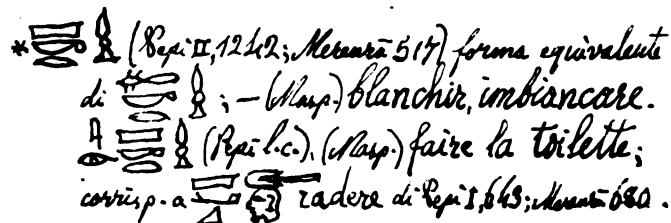 * (Pepi II, 1242; Merenrâ 517) forma equivalente
di ; — (Masp.) blanchir, imbiancare.
(Pepi l.c.), (Masp.) faire la toilette;
corrisp. a radere di Pepi I, 643; Merenrâ 680.